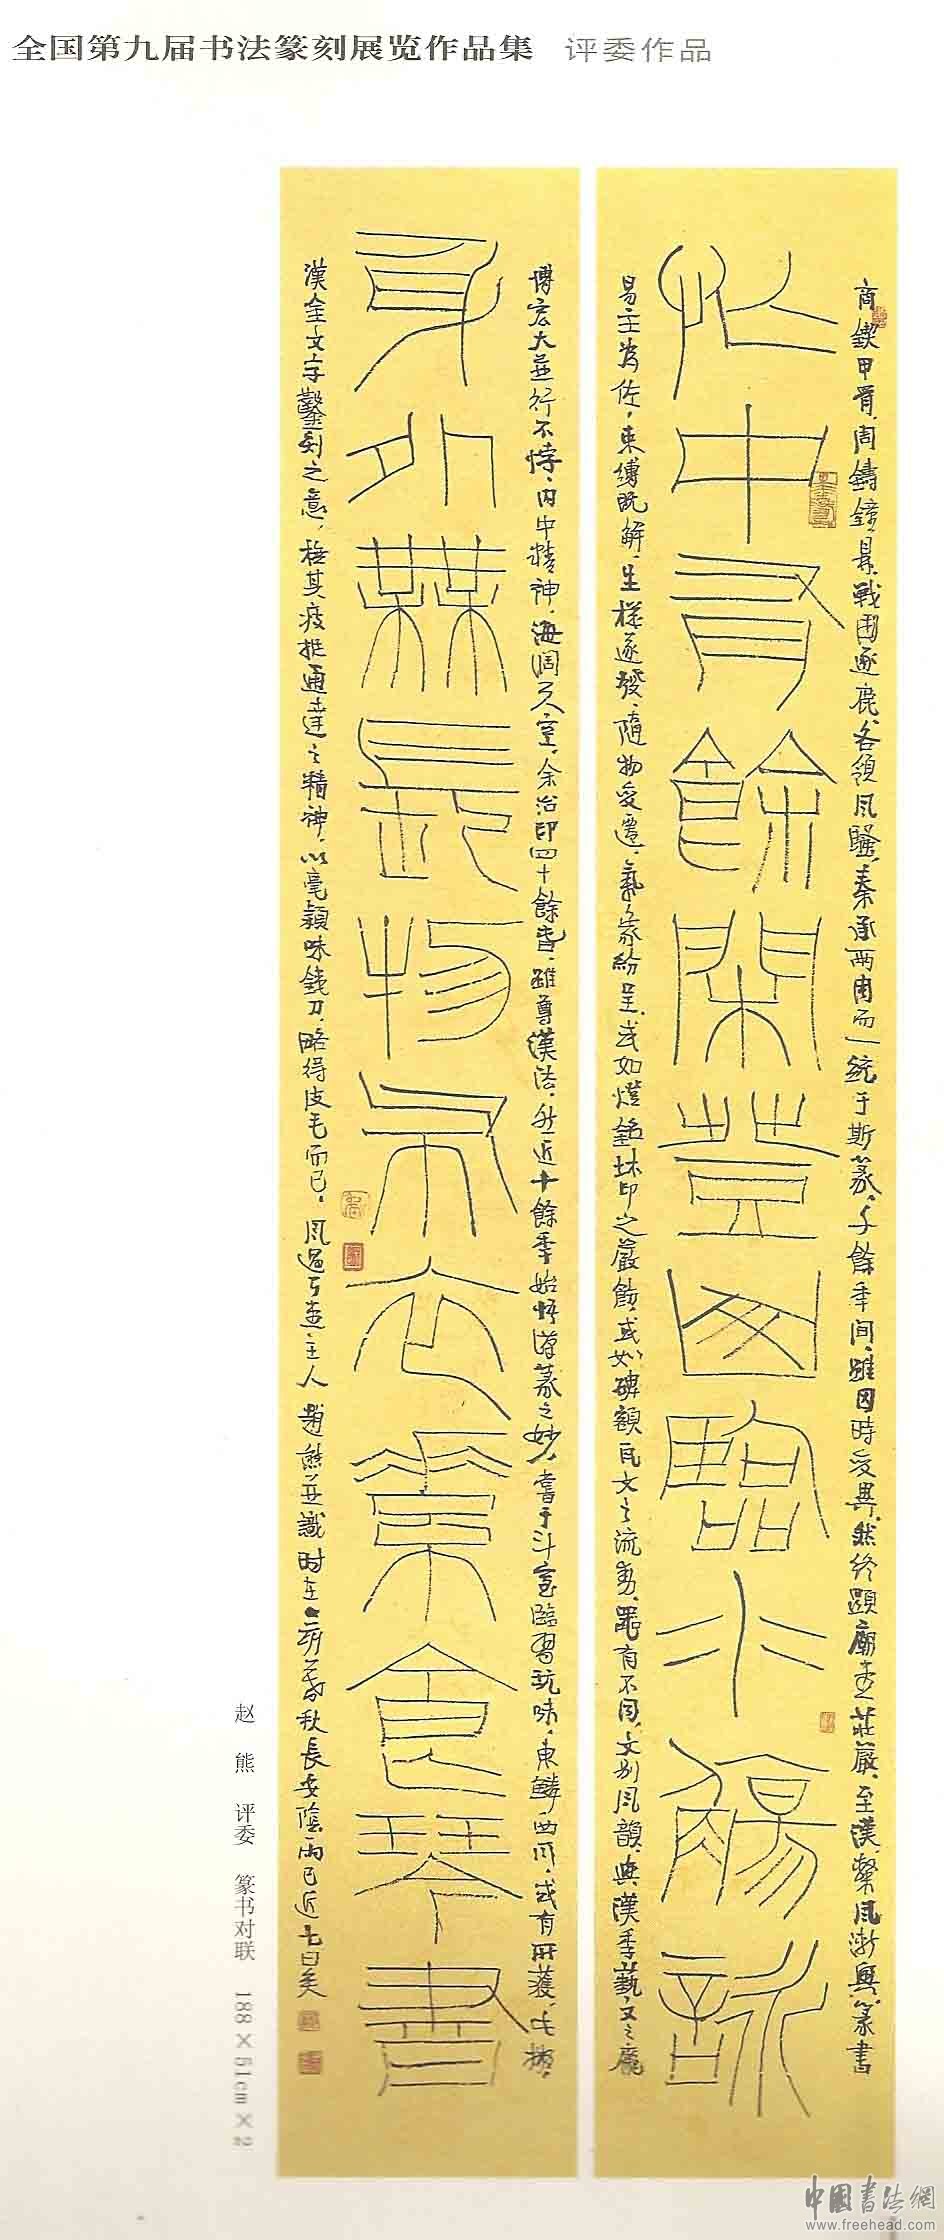 全国第九届书法篆刻展览作品集 评委作品
忙中有餘閑登山臨水觴詠
商鍥甲骨，周鑄鐘鼎，戰國逐鹿，各領風騷，秦承兩周而一統于斯篆，千餘年間，雖因時变異，然終顯廟堂莊嚴，至漢，風漸興，篆書
易主為佐，束縛既解，生樣逐發，隨物变遷，氣象紛呈，或如燈銘印之嚴飭，或如碑額瓦文之流動，有不同，文別風韻，與漢季藝文之龐
身外無長物布衣蔬食琴書
博宏大並行不悖，内中精神，海闊天空，余治印四十餘春，雖尊漢法，然近十餘年始悟漢篆之妙，嘗于斗室臨習玩味，東鱗西爪，或有所獲，
漢金文字鑿刻之意，其通達之精神，以毫穎味鐵刀，略得皮毛而已，風過耳堂主人 趙熊並識時在秋長安陰雨已近七日矣
赵 熊 评委 篆书对联 188×51cm×2
中国書法網
www.freehead.com